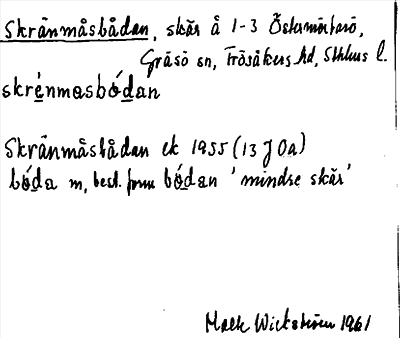 Skränmåsbådan, skär å 1-3 Östermörtarö,
Gräsö sn, Frösåkers hd, Sthlms l.
skrénmasbó́dan
Skränmåsbådan ek 1955 (13 J 0a)
bóda m, best. form bódan 'mindre skär'
Wickström 1961